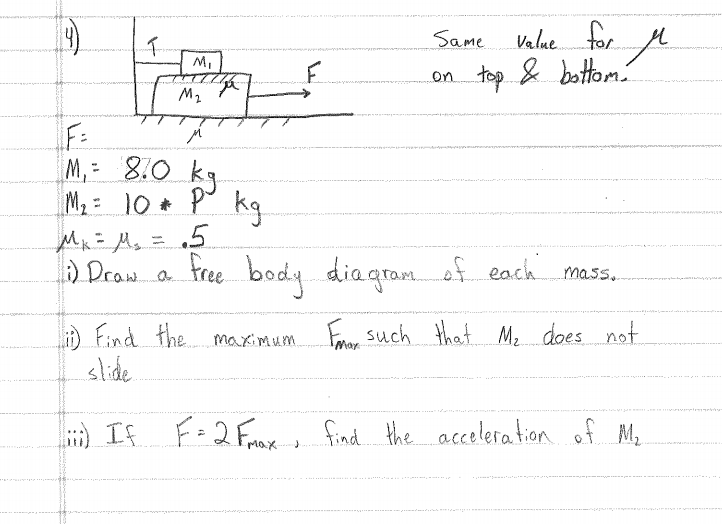 4)
Same value for μ
on top & bottom.
T
M₁
F
M₂
μ
μ
F=
M₁ = 8.0 kg
M₂ = 10 * P kg
μₖ = μₛ = .5
i) Draw a free body diagram of each mass.
ii) Find the maximum Fmax such that M₂ does not
slide
iii) If F = 2 Fmax , find the acceleration of M₂